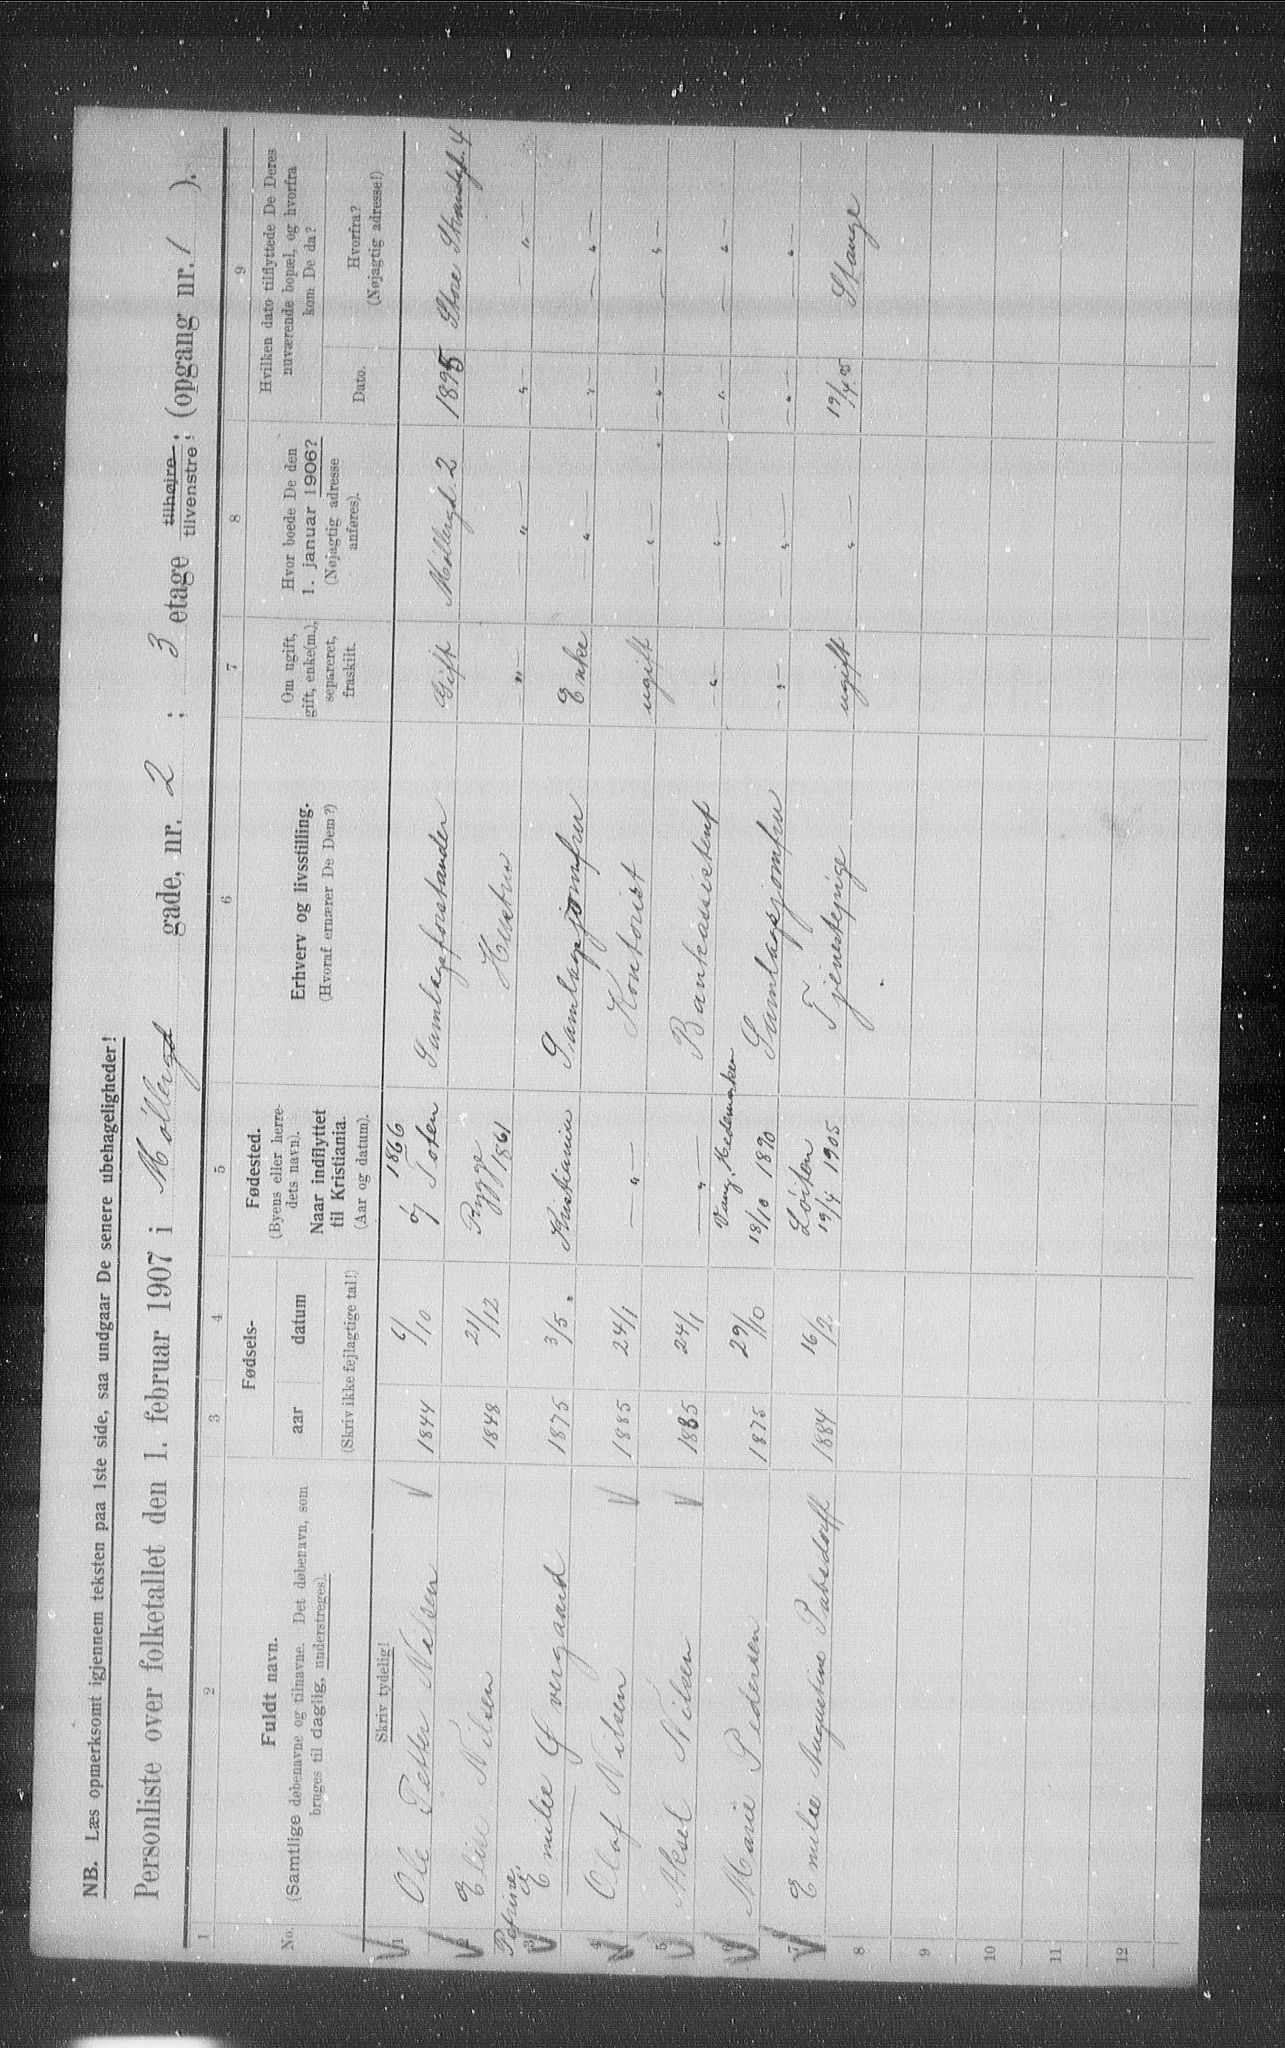 NB. Læs opmerksomt igjennem teksten paa 1ste side, saa undgaar De senere ubehageligheder!
Personliste over folketallet den 1. februar 1907 i Möllergd gade, nr. 2 ; 3 etage tilhøjre, tilvenstre, (opgang nr. 1 ).
1 2 3 4 5 6 7 8 9
No.
Fuldt navn.
(Samtlige døbenavne og tilnavne. Det døbenavn, som
bruges til daglig, understreges).
Skriv tydelig!
Fødsels-
aar datum
(Skriv ikke fejlagtige tal!)
Fødested.
(Byens eller herre-
dets navn).
Naar indflyttet
til Kristiania.
(Aar og datum).
Erhverv og livsstilling.
(Hvoraf ernærer De Dem?)
Om ugift,
gift, enke(m.),
separeret,
fraskilt.
Hvor boede De den
1. januar 1906?
(Nøjagtig adresse
anføres).
Hvilken dato tilflyttede De Deres
nuværende bopæl, og hvorfra
kom De da?
Dato.
Hvorfra?
(Nøjagtig adresse!)
1 Ole Petter Nilsen 1844 6/10 Ø Toten 1866 Samlagsforstander Gift Möllergd. 2 1895 Store Strandg. 4
2 Elise Nilsen 1848 21/12 Rygge 1861 Hustru " — " — — " — — " —
3 Petrine Emilie Övergaard 1875 3/5 Kristiania Samlagsjomfru Enke — " — — " — — " —
4 Olaf Nilsen 1885 24/1 — " — Kontorist ugift — " — — " — — " —
5 Aksel Nilsen 1885 24/1 — " — Bankassistent — " — — " — — " — — " —
6 Marie Pedersen 1875 29/10 Vang, Hedemarken 18/10 1890 Samlagsjomfru — " — — " — — " — — " —
7 Emilie Augustine Pabsdorff 1884 16/2 Löiten 19/4 1905 Tjenestepige ugift — " — 19/4 05 Stange
8
9
10
11
12